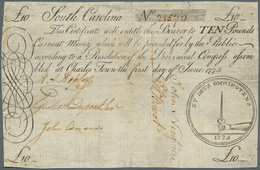 £10 South Carolina No. 21570 £10
This Certificate will entitle the Bearer to TEN Pounds
Current Money which will be provided for by the Public
according to a Resolution of the Provincial Congress assem
bled at Charles Town the first day of June 1775
John Edwards
ET DEUS OMNIPOTENS
1775
£10 £10